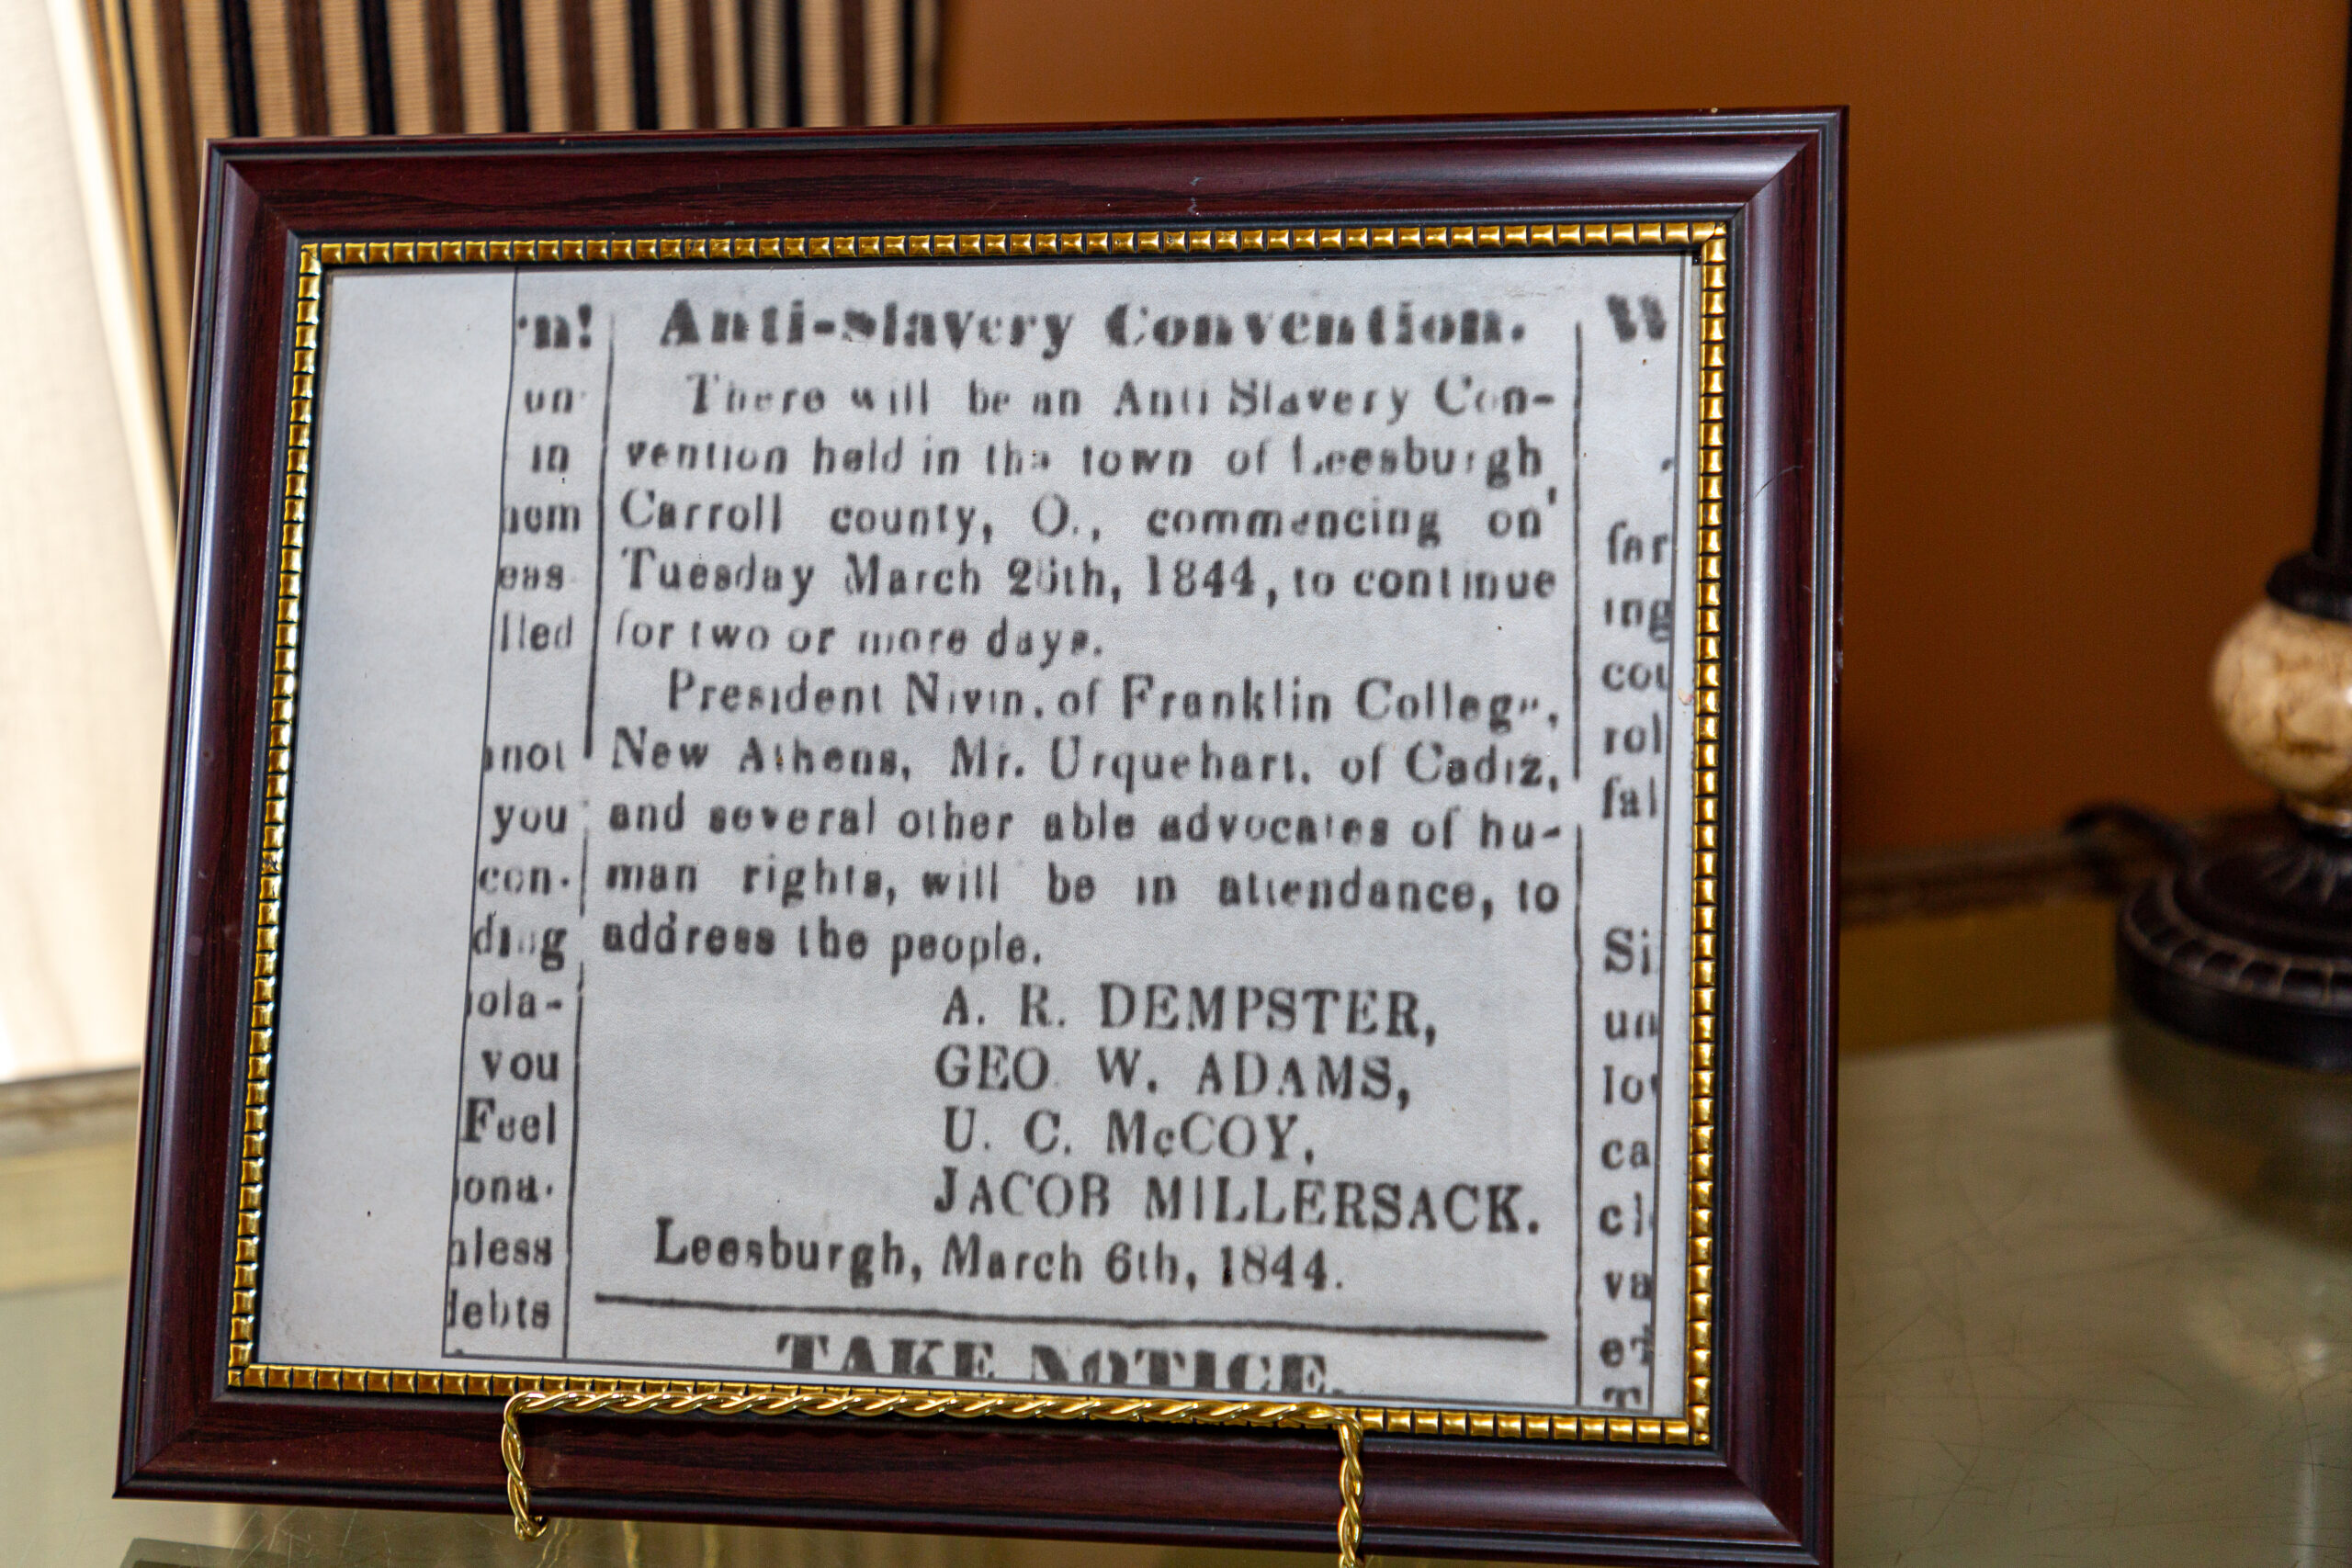 'n!
un
in
hem
eas
lled
not
you
con-
ding
iola-
you
Feel
iona-
nless
debts
Anti-slavery Convention.
There will be an Anti Slavery Con-
vention held in the town of Leesburgh
Carroll county, O., commencing on
Tuesday March 26th, 1844, to continue
for two or more days.
President Nivin, of Franklin College,
New Athens, Mr. Urquehart, of Cadiz,
and several other able advocates of hu-
man rights, will be in attendance, to
address the people.
A. R. DEMPSTER,
GEO W. ADAMS,
U. C. McCOY,
JACOB MILLERSACK.
Leesburgh, March 6th, 1844.
TAKE NOTICE.
W
far
ing
cou
rol
fal
Si
un
lo
ca
cl
va